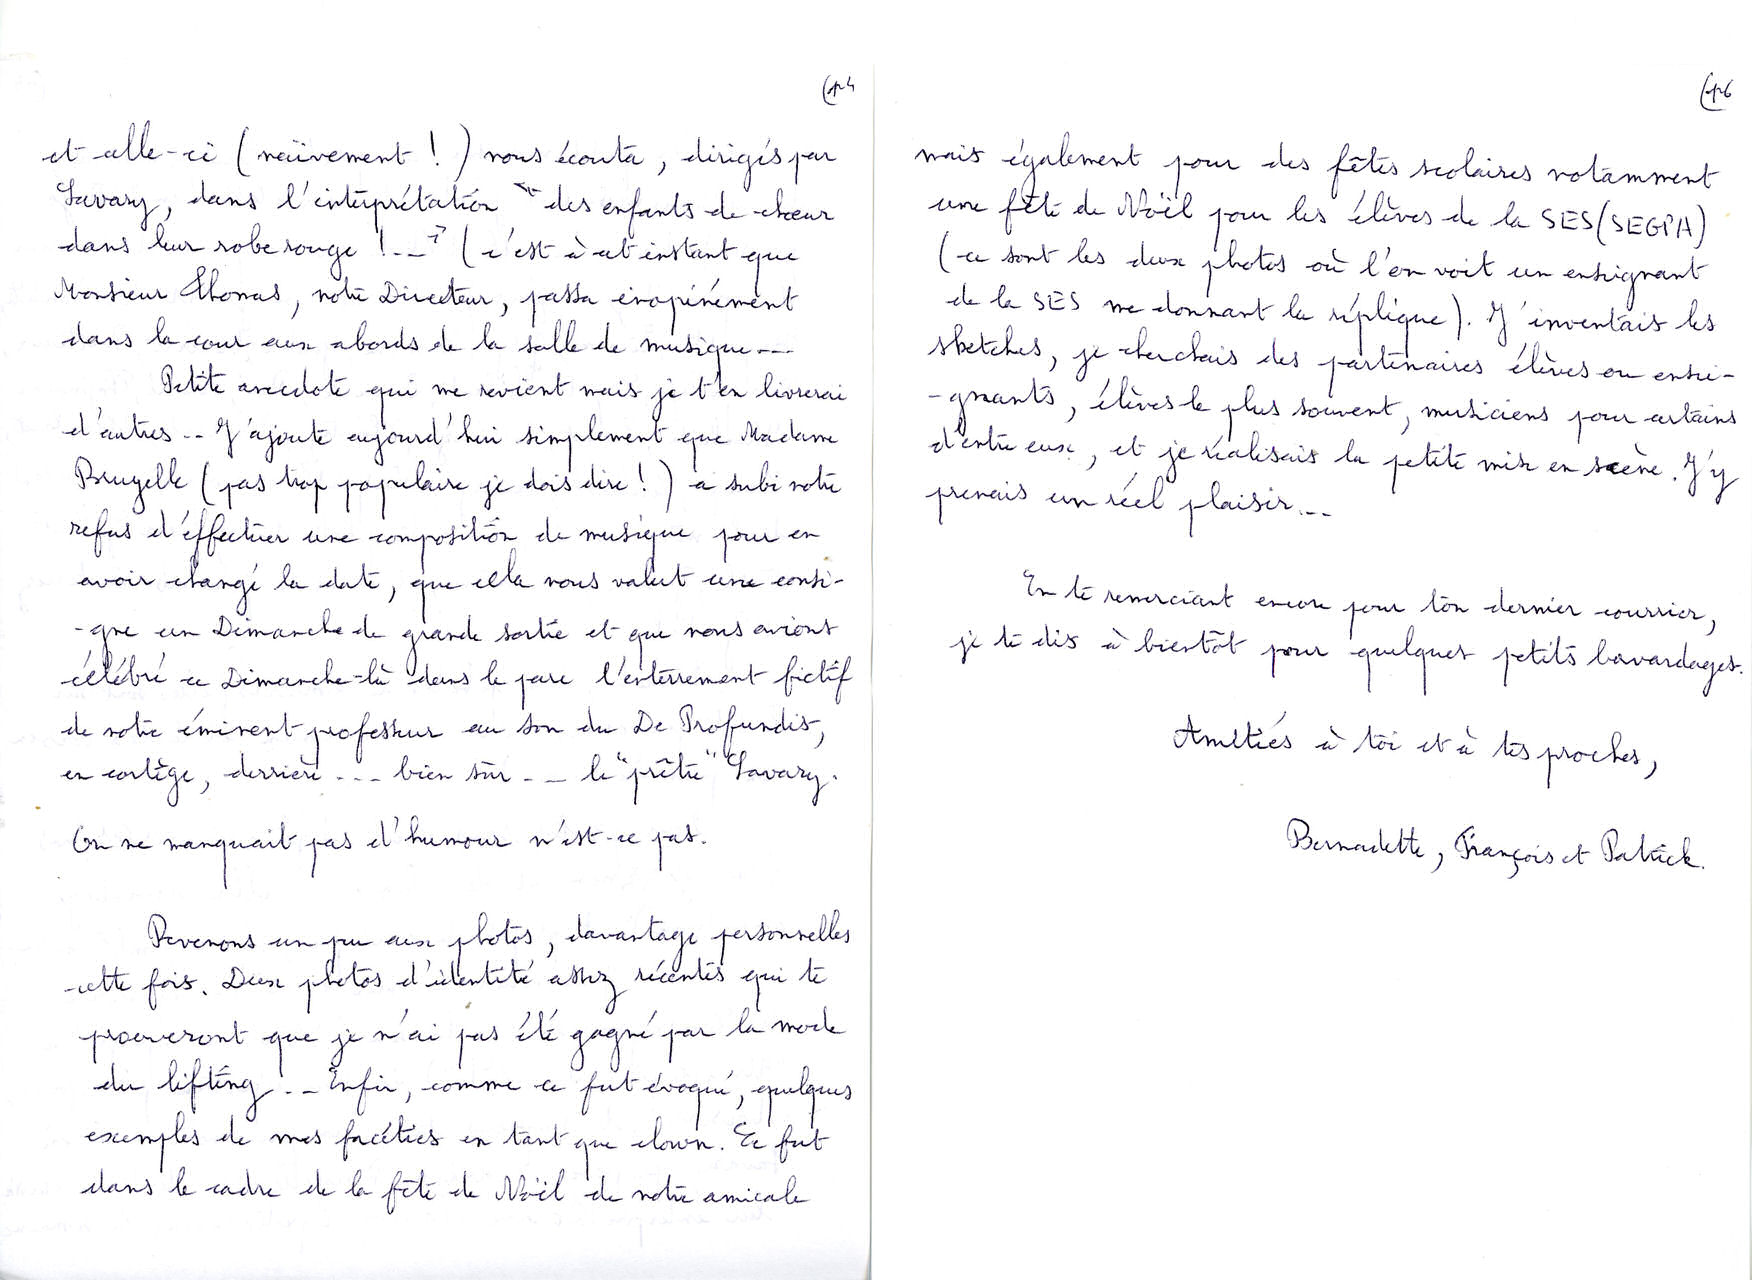 (p4
et celle-ci (naïvement !) nous écouta, dirigés par
Savary, dans l'interprétation "des enfants de chœur
dans leur robe rouge !..." (c'est à cet instant que
Monsieur Thomas, notre Directeur, passa inopinément
dans la cour aux abords de la salle de musique...
Petite anecdote qui me revient mais je t'en livrerai
d'autres .. J'ajoute aujourd'hui simplement que Madame
Bruyelle (pas trop populaire je dois dire !) a subi notre
refus d'éffectuer une composition de musique pour en
avoir changé la date, que cela nous valut une consi-
-gne un Dimanche de grande sortie et que nous avions
célébré ce Dimanche-là dans le parc l'enterrement fictif
de notre éminent professeur au son du De Profundis,
en cortège, derrière ... bien sûr ... le "prêtre" Savary.
On ne manquait pas d'humour n'est-ce pas.
Revenons un peu aux photos, davantage personnelles
cette fois. Deux photos d'identité assez récentes qui te
prouveront que je n'ai pas été gagné par la mode
du lifting .. Enfin, comme ce fut évoqué, quelques
exemples de mes facéties en tant que clown. Ce fut
dans le cadre de la fête de Noël de notre amicale
(p6
mais également pour des fêtes scolaires notamment
une fête de Noël pour les élèves de la SES (SEGPA)
(ce sont les deux photos où l'on voit un enseignant
de la SES me donnant la réplique). J'inventais les
sketches, je cherchais des partenaires élèves ou ensei-
-gnants, élèves le plus souvent, musiciens pour certains
d'entre eux, et je réalisais la petite mise en scène. J'y
prenais un réel plaisir...
En te remerciant encore pour ton dernier courrier,
je te dis à bientôt pour quelques petits bavardages.
Amitiés à toi et à tes proches,
Bernadette, François et Patrick.